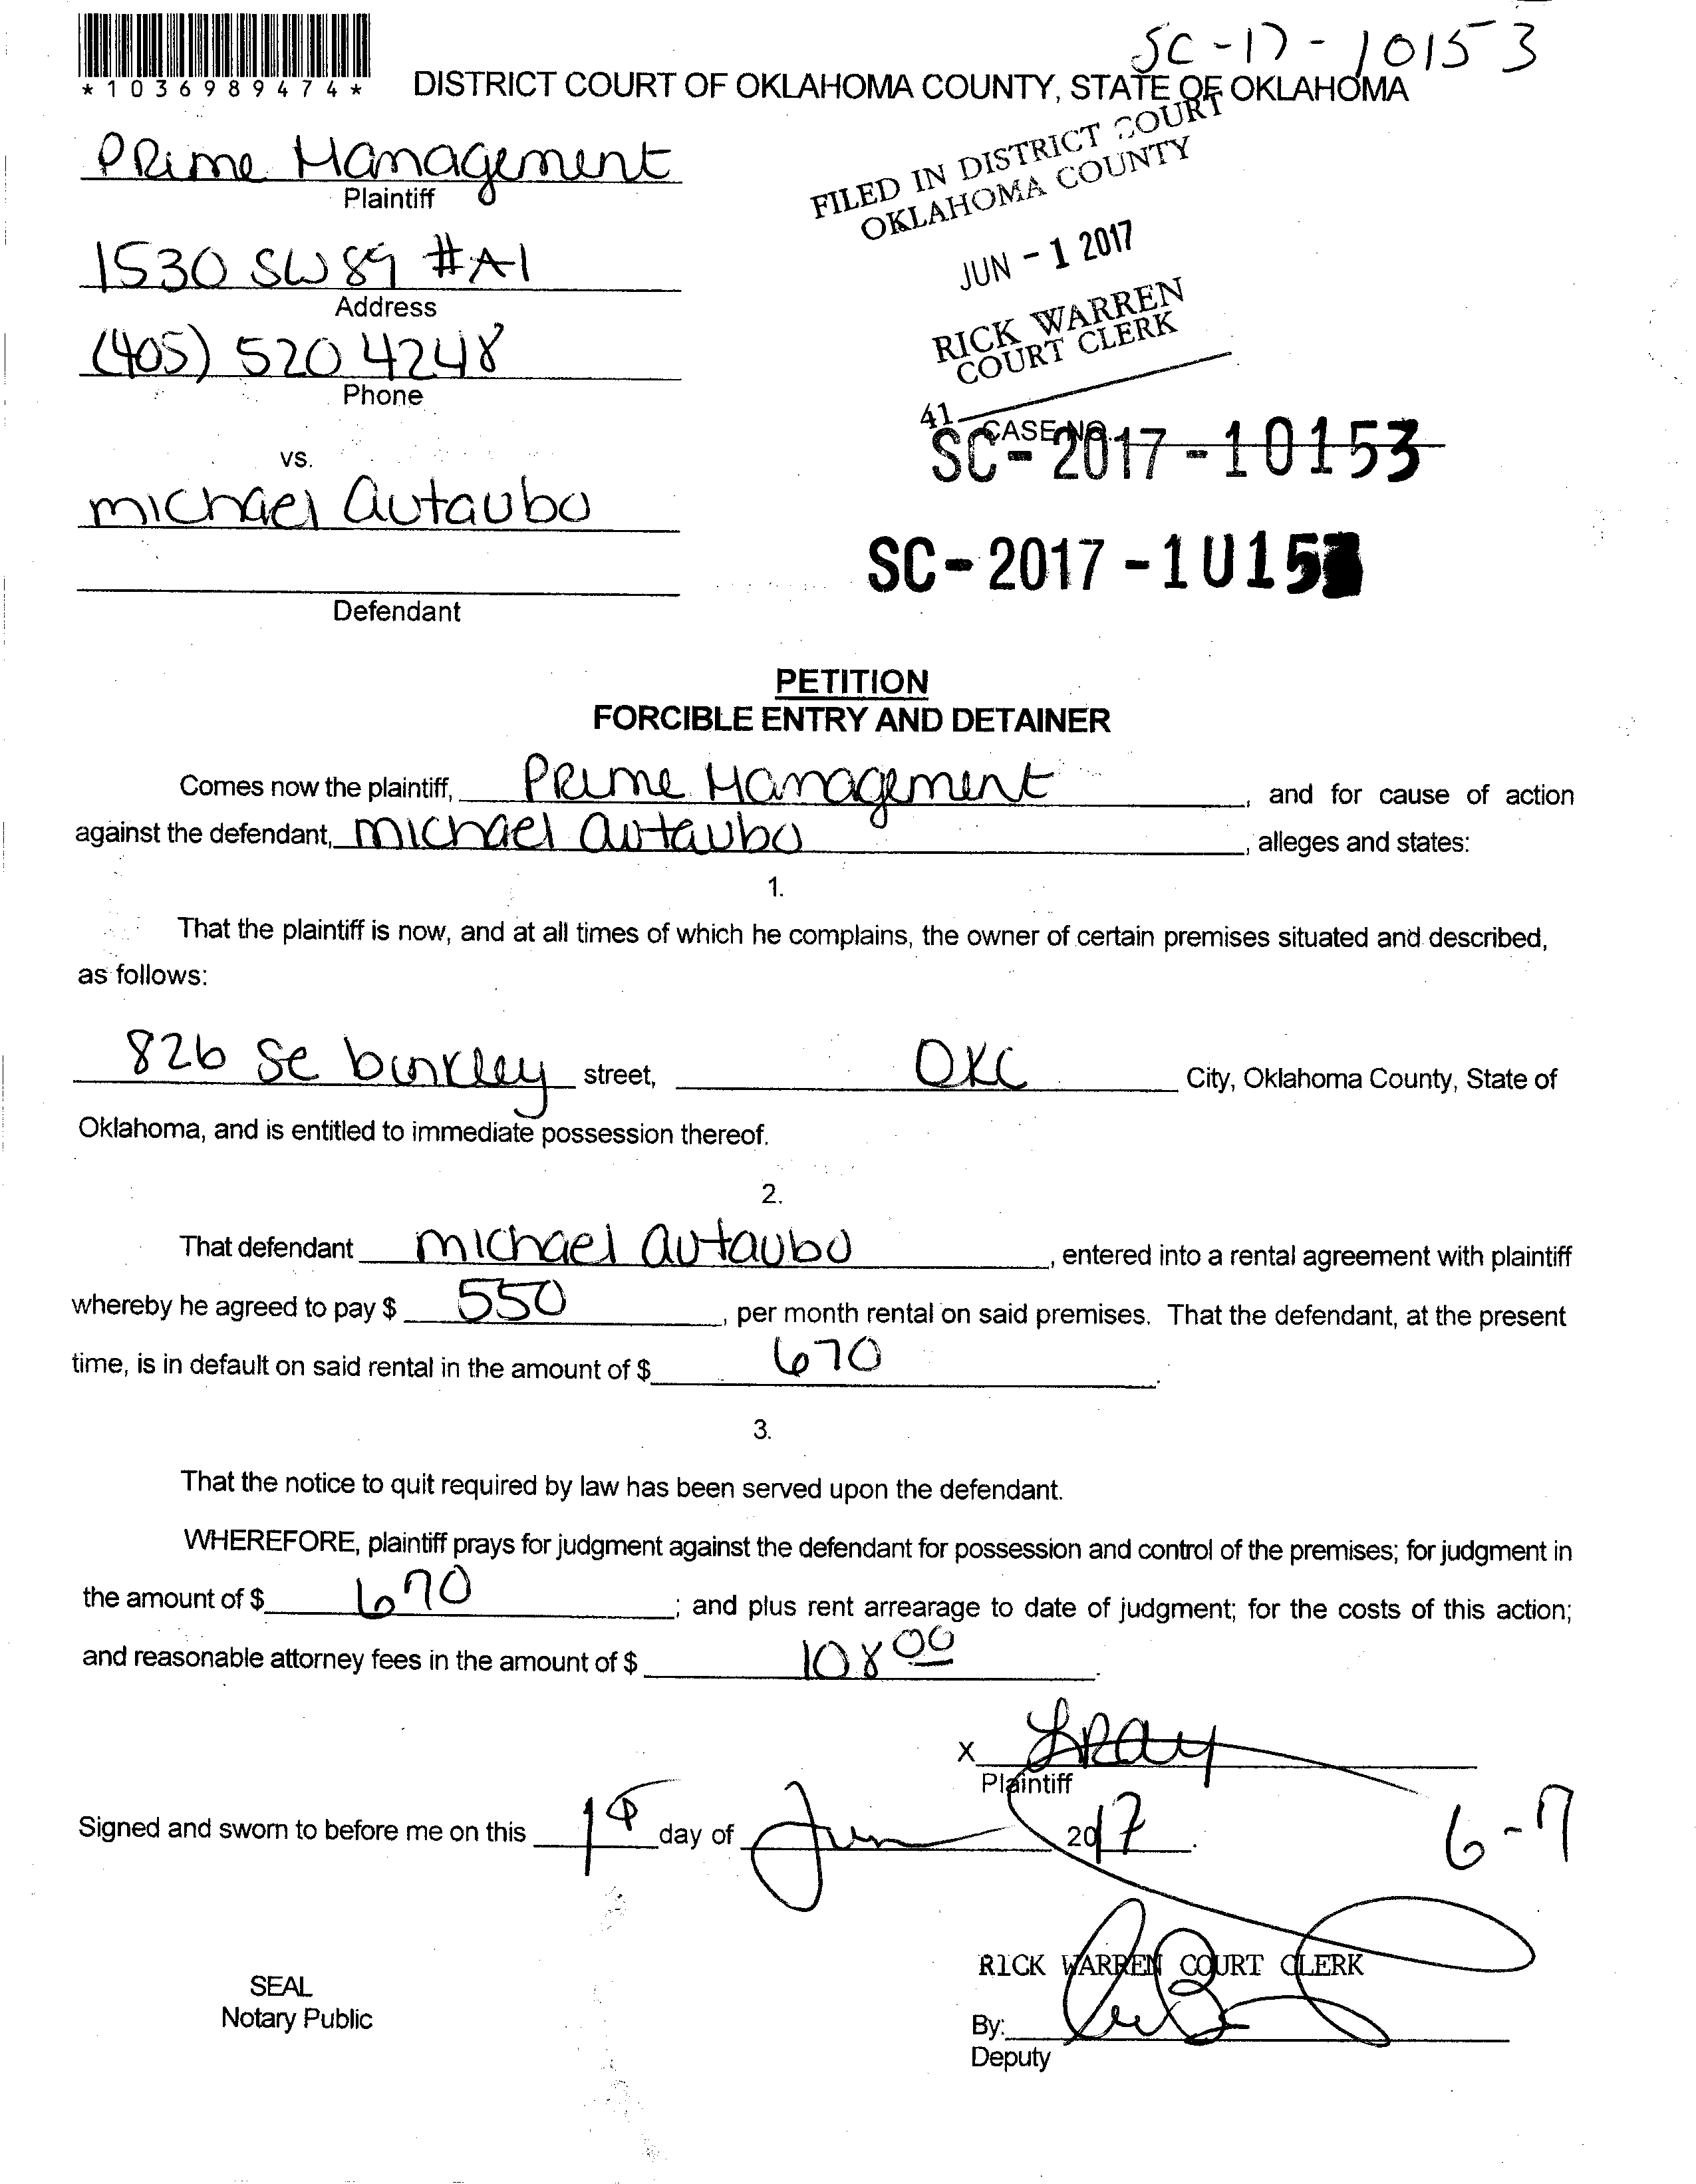 SC-17-10153
*1036989474*
DISTRICT COURT OF OKLAHOMA COUNTY, STATE OF OKLAHOMA
PRime Management
Plaintiff
FILED IN DISTRICT COURT
OKLAHOMA COUNTY
JUN - 1 2017
RICK WARREN
COURT CLERK
41
1530 SW 89 #A1
Address
(405) 520 4248
Phone
CASE NO.
SC-2017-10153
vs.
michael autaubo
SC-2017-1015
Defendant
PETITION
FORCIBLE ENTRY AND DETAINER
Comes now the plaintiff, PRime Management, and for cause of action
against the defendant, michael autaubo, alleges and states:
1.
That the plaintiff is now, and at all times of which he complains, the owner of certain premises situated and described,
as follows:
826 Se binkley street, OKC City, Oklahoma County, State of
Oklahoma, and is entitled to immediate possession thereof.
2.
That defendant michael autaubo, entered into a rental agreement with plaintiff
whereby he agreed to pay $ 550, per month rental on said premises. That the defendant, at the present
time, is in default on said rental in the amount of $ 670.
3.
That the notice to quit required by law has been served upon the defendant.
WHEREFORE, plaintiff prays for judgment against the defendant for possession and control of the premises; for judgment in
the amount of $ 670; and plus rent arrearage to date of judgment; for the costs of this action;
and reasonable attorney fees in the amount of $ 108 00.
X LRay
Plaintiff
Signed and sworn to before me on this 1st day of Jun 2017.
6-7
RICK WARREN COURT CLERK
SEAL
Notary Public
By:
Deputy